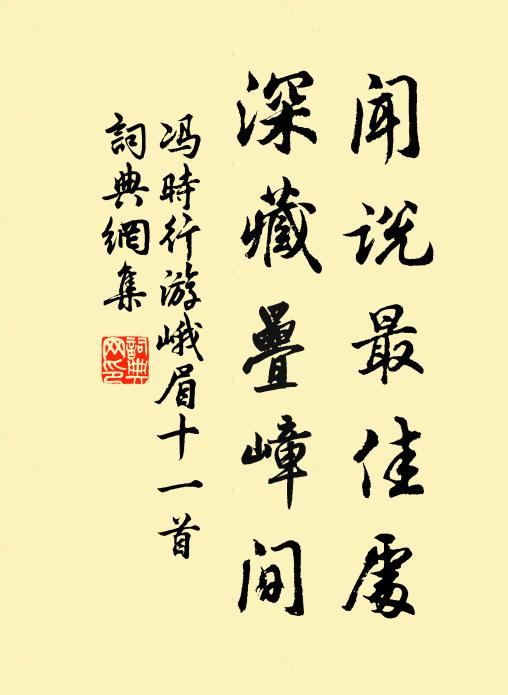 闻说最佳處
深藏疊嶂间
冯時行游峨眉十一首
詞典網集
詞典網印